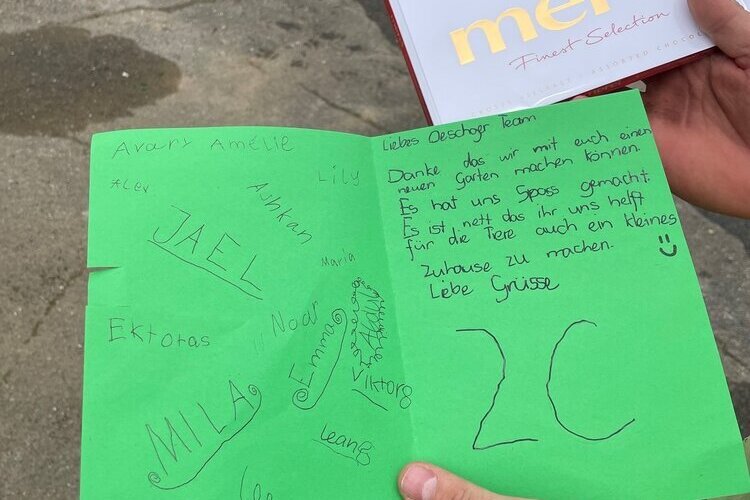 mer
Finest Selection
Avary Amélie
Alex
Lily
Ashkan
JAEL
Maria
Ektoras
Noar
Emma
Viktorg
MILA
Leang
Liebes Oeschger Team
Danke das wir mit euch einen
neuen Garten machen können.
Es hat uns Spass gemacht.
Es ist nett das ihr uns helft
für die Tiere auch ein kleines
Zuhause zu machen.
Liebe Grüsse
2C